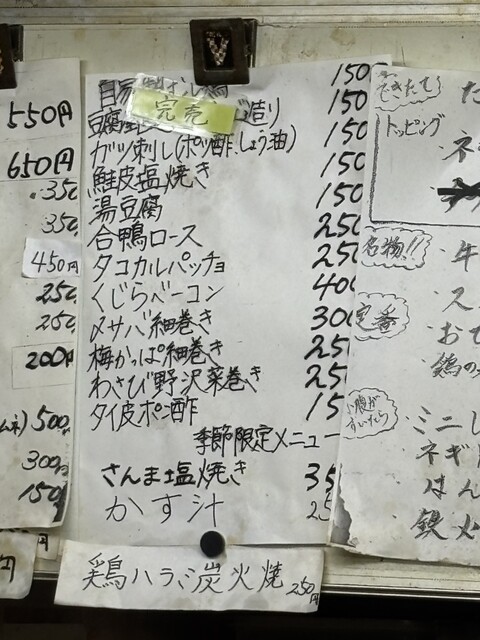 550円
650円
350
350
450円
250
250
200円
500
300
150
150
完売
造り 150
ガツ刺し(ポン酢、しょう油) 150
鮭皮塩焼き 150
湯豆腐 150
合鴨ロース 250
タコカルパッチョ 250
くじらベーコン 400
〆サバ細巻き 300
梅かっぱ細巻き 25
わさび野沢菜巻き 25
タイ皮ポン酢 15
季節限定メニュー
さんま塩焼き 35
かす汁 25
鶏ハラミ炭火焼 250円
できたて
た
トッピング
ネ
名物!!
牛
ス
定番
お
鶏の
小腹がすいたら
ミニ
ネギ
はん
鉄火